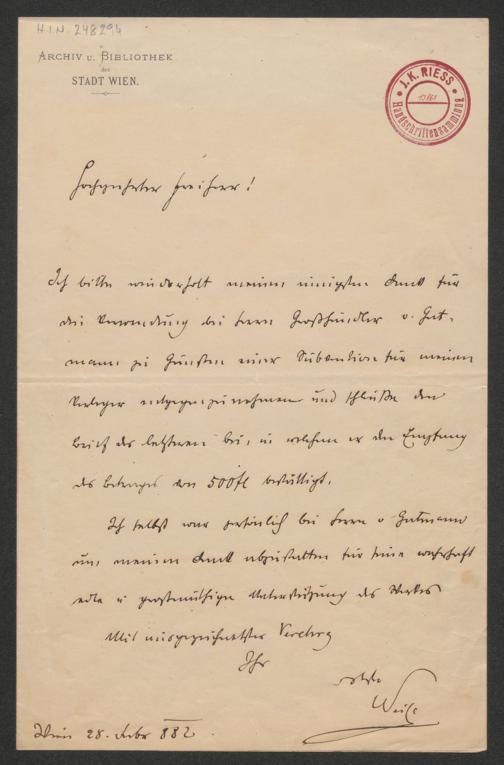 HIN 248294
ARCHIV U. BIBLIOTHEK
der
STADT WIEN.
J. K. RIESS
Handschriftensammlung
Hochgeehrter Freiherr!
Ich bitte wiederholt meinen innigsten Dank für
die Verwendung bei Herrn Großhändler v. Gut-
mann zu Gunsten einer Subvention für meinen
Verleger entgegenzunehmen und schließe den
Brief des letzteren bei, in welchem er den Empfang
des Betrages von 500 fl bestättigt.
Ich selbst war persönlich bei Herrn v Gutmann
um meinen Dank abzustatten für seine wahrhaft
edle u großmüthige Unterstützung des Werkes
Mit ausgezeichneter Verehrg
Ihr
Weiß
Wien 28. Febr 882.